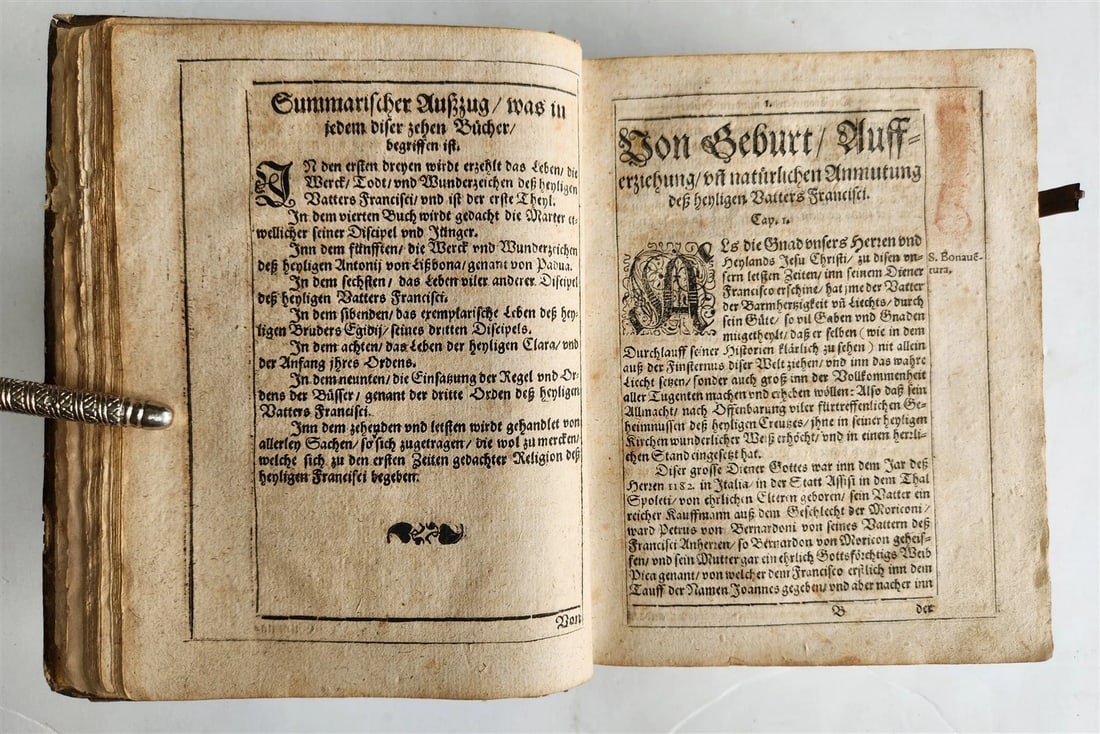 Summarischer Außzug/ was in
jedem diser zehen Bücher/
begriffen ist.
IN den ersten dreyen wirdt erzehlt das Leben/ die
Werck/ Todt/ vnd Wunderzeichen deß heyligen
Vatters Francisci/ vnd ist der erste Theyl.
In dem vierten Buch wirdt gedacht die Marter et-
wellicher seiner Discipel vnd Jünger.
Inn dem fünfften/ die Werck vnd Wunderzeichen
deß heyligen Antonij von Lißbona/ genant von Padua.
In dem sechsten/ das Leben viler anderer Discipel
deß heyligen Vatters Francisci.
In dem sibenden/ das exemplarische Leben deß hey-
ligen Bruders Egidij/ seines dritten Discipels.
In dem achten/ das Leben der heyligen Clara/ vnd
der Anfang jhres Ordens.
In dem neunten/ die Einsatzung der Regel vnd Or-
dens der Büsser/ genant der dritte Orden deß heyligen
Vatters Francisci.
Inn dem zeheyden vnd letsten wirdt gehandlet von
allerley Sachen/ so sich zugetragen/ die wol zu mercken/
welche sich zu den ersten Zeiten gedachter Religion deß
heyligen Francisci begeben.
Von
1.
Von Geburt/ Auff-
erziehung/ vñ natürlichen Anmutung
deß heyligen Vatters Francisci.
Cap. 1.
ALs die Gnad vnsers Herren vnd
Heylands Jesu Christi/ zu disen vn-
sern letsten Zeiten/ inn seinem Diener
Francisco erschine/ hat jme der Vatter
der Barmhertzigkeit vñ Liechts/ durch
sein Güte/ so vil Gaben vnd Gnaden
mitgetheylt/ daß er selben (wie in dem
Durchlauff seiner Historien klärlich zu sehen) nit allein
auß der Finsternus diser Welt ziehen/ vnd inn das wahre
Liecht setzen/ sonder auch groß inn der Vollkommenheit
aller Tugenten machen vnd erheben wöllen: Also daß sein
Allmacht/ nach Offenbarung viler fürtreffenlichen Ge-
heimnussen deß heyligen Creutzes/ jhne in seiner heyligen
Kirchen wunderlicher Weiß erhöcht/ vnd in einen herrli-
chen Stand eingesetzt hat.
Diser grosse Diener Gottes war inn dem Jar deß
Herren 1182. in Italia/ in der Statt Assisi in dem Thal
Spoleti/ von ehrlichen Elteren geboren/ sein Vatter ein
reicher Kauffmann auß dem Geschlecht der Moriconi/
ward Petrus von Bernardoni von seines Vattern deß
Francisci Anherren/ so Bernardon von Moricon geheis-
sen/ vnd sein Mutter gar ein ehrlich Gottsförchtigs Weib
Pica genant/ von welcher dem Francisco erstlich inn dem
Tauff der Namen Joannes gegeben/ vnd aber nacher inn
B der
S. Bonauē-
tura.